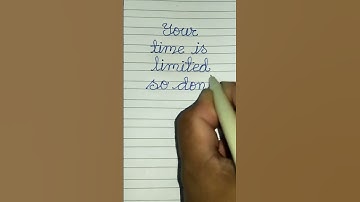 Your
time is
limited
so don